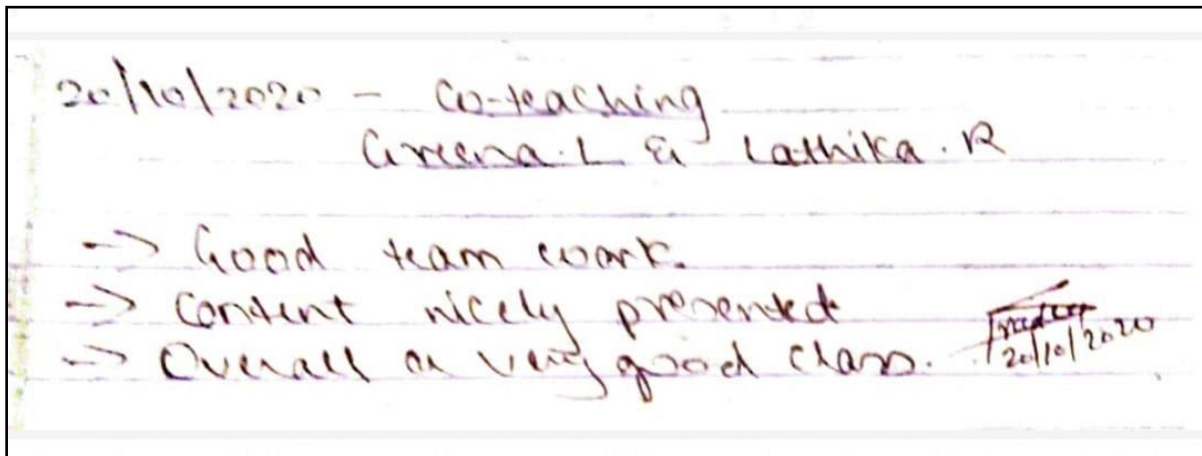 20/10/2020 - Co-teaching
Greena.L & Lathika.R
-> Good team work.
-> Content nicely presented
-> Overall a very good class.
20/10/2020